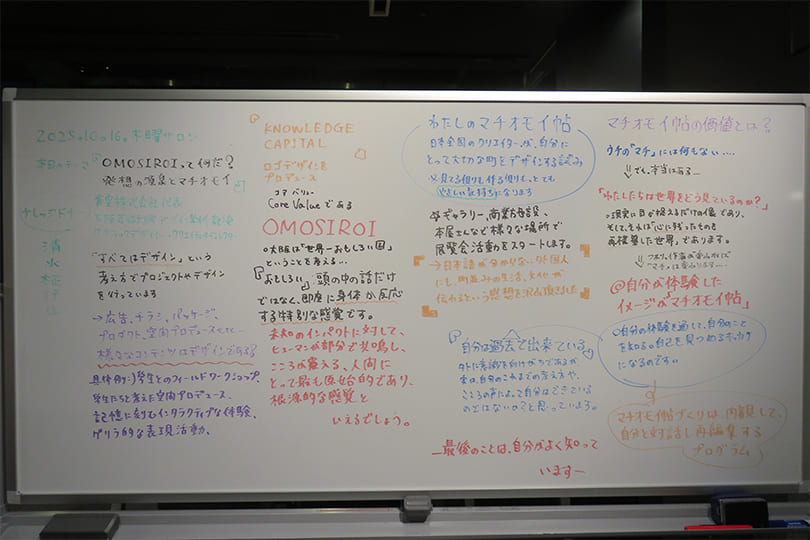 2025.10.16. 木曜サロン
本日のテーマ
「OMOSIROIって何だ?
発想の源泉とマチオモイ
ナレッジドナー
清水柾行
株式会社 代表
「すべてはデザイン」という
考え方でプロジェクトやデザイン
を行っています
→広告、チラシ、パッケージ、
プロダクト、空間プロデュースetc…
様々なコンテンツはデザインである?
具体例:)学生とのフィールドワークショップ、
学生たちと考えた空間プロデュース、
記憶に刻むインタラクティブな体験、
ゲリラ的な表現活動、
KNOWLEDGE
CAPITAL
ロゴデザインを
プロデュース
コアバリュー
Core Valueである
OMOSIROI
○大阪は「世界一おもしろい国」
ということを考える…
『おもしろい』頭の中の話だけ
ではなく、即座に身体が反応
する特別な感覚です。
未知のインパクトに対して、
ヒューマンが部分で共鳴し、
こころが震える、人間に
とって最も原始的であり、
根源的な感覚と
いえるでしょう。
わたしのマチオモイ帖
日本全国のクリエイターが、自分に
とって大切な町をデザインする試み
必見てる側も作る側も、とても
やさしい気持ちになります
ギャラリー、商業施設、
本屋さんなど様々な場所で
展覧会活動をスタートします。
→日本語が分からない外国人
にも、町並みの生活、文化が
伝わるという感想を沢山頂きました
「自分は過去で出来ている」
外に意識を向けがちであるが
実は、自分のこれまでの考え方や、
こころの声によって自分はできている
のではないの?と思っています。
―最後のことは、自分がよく知って
います―
マチオモイ帖の価値とは?
ウチの「マチ」には何もない….
⇓でも、本当はある…
「わたしたちは世界をどう見ているのか?」
○現実に目が捉えるだけの像であり、
そして、それは「心に残ったものを
再構築した世界」であります。
「マチ」は変わります….
@自分が体験した
イメージが「マチオモイ帖」
○自分の体験を通して、自分のこと
を知る。自己を見つめるキッカケ
になるのです。
マチオモイ帖づくりは、内観して、
自分と対話し再編集する
プログラム